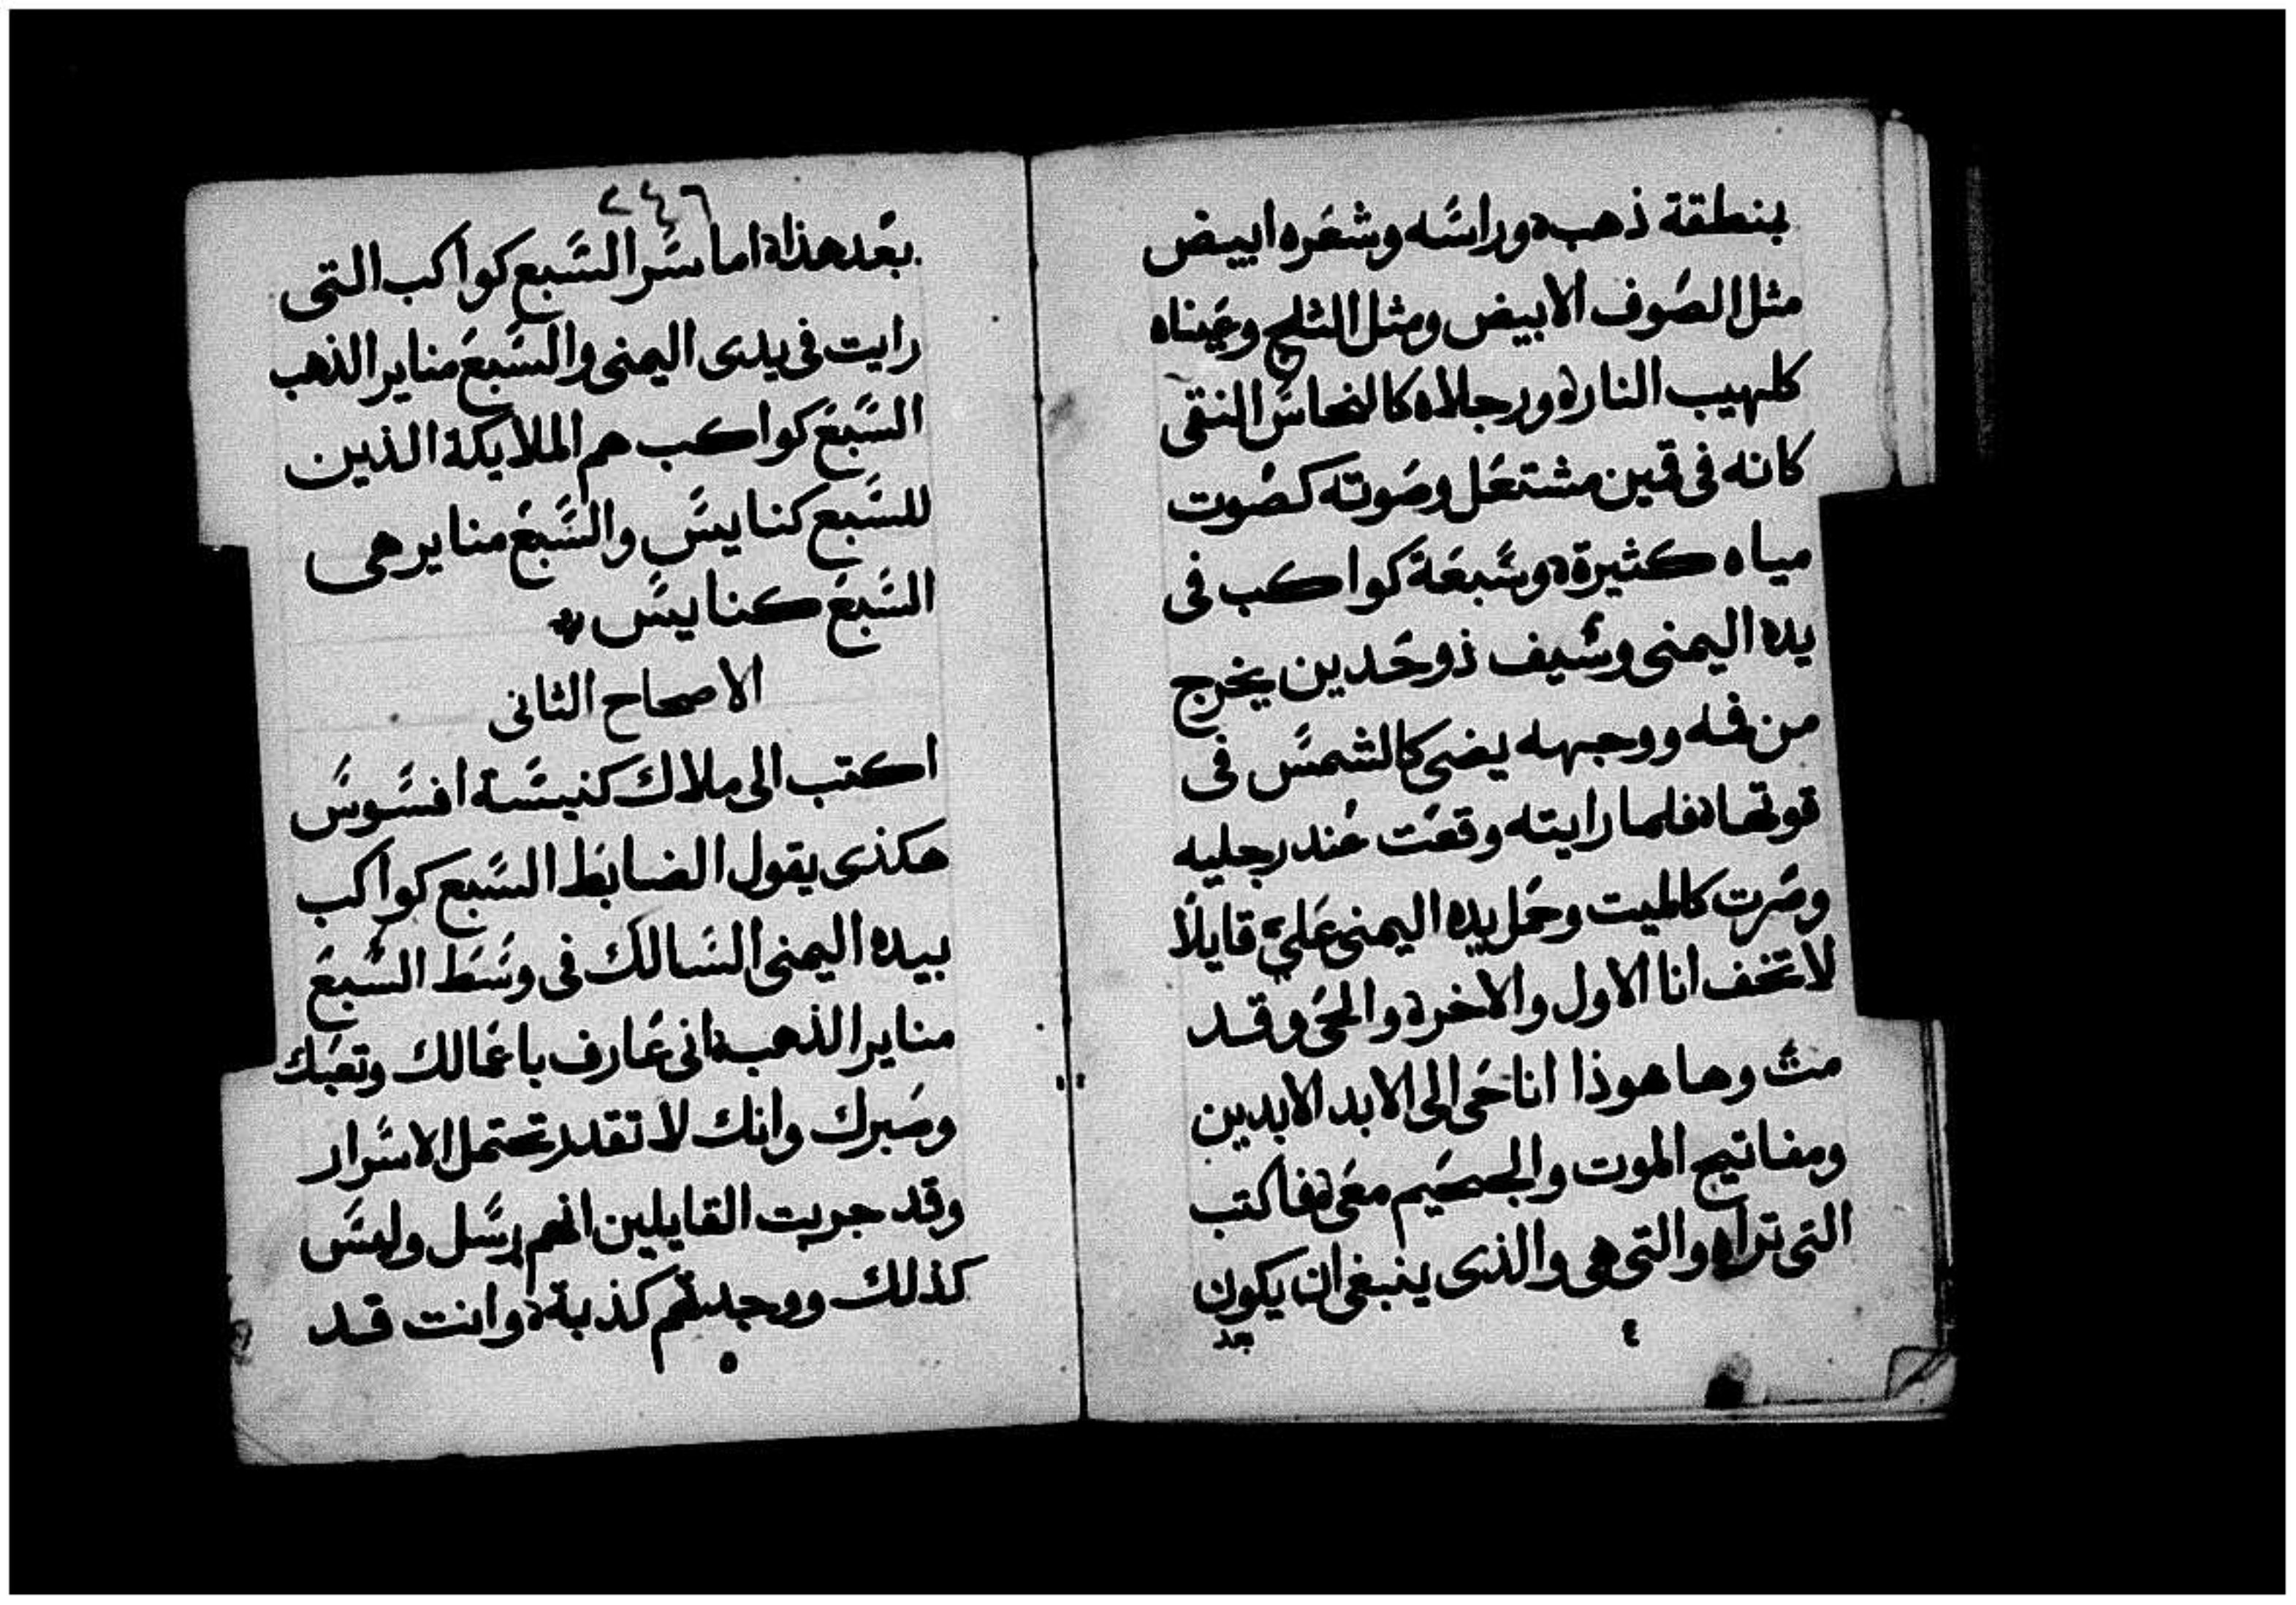 بنطقة ذهب وراسه وشعره ابيض
مثل الصوف الابيض ومثل الثلج وعيناه
كلهيب النار ورجلاه كالنحاس النقى
كانه فى قمين مشتعل وصوته كصوت
مياه كثيرة وسبعة كواكب فى
يده اليمنى وسيف ذو حدين يخرج
من فمه ووجهه يضى كالشمس فى
قوتها فلما رايته وقعت عند رجليه
وصرت كالميت وحمل يده اليمنى عليّ قايلاً
لا تخف انا الاول والاخر والحى وقد
مت وها هوذا انا حى الى الابد الابدين
ومفاتيح الموت والجحيم معى فاكتب
التى تراه والتى هى والذى ينبغى ان يكون
بعد
٤
٢٤٦
بعد هذا اما سر السبع كواكب التى
رايت فى يدى اليمنى والسبع مناير الذهب
السبع كواكب هم الملايكة الذين
للسبع كنايس والسبع مناير هى
السبع كنايس
الاصحاح الثانى
اكتب الى ملاك كنيسة افسوس
هكذى يقول الضابط السبع كواكب
بيده اليمنى السالك فى وسط السبع
مناير الذهب انى عارف باعمالك وتعبك
وصبرك وانك لا تقدر تحتمل الاسرار
وقد جربت القايلين انهم رسل وليس
كذلك ووجدتهم كذبة وانت قد
٥